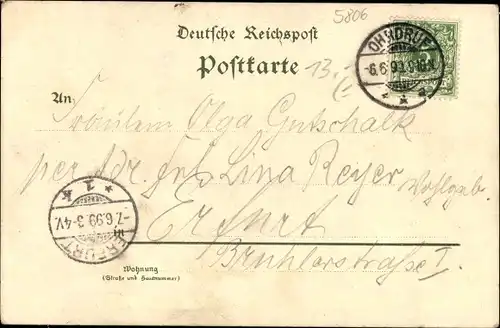 5806
Deutsche Reichspost
Postkarte
13.-
OHRDRUF
-6.6.99.9-10.N.
* * a.
An
Fräulein Olga Gutschalk
per Adr. Frl. Lina Reyer
Wohlgeb.
* 1 *
k
-7.6.99.3-4V.
ERFURT
in
Erfurt
Brühlerstraße I.
Wohnung
(Straße und Hausnummer)